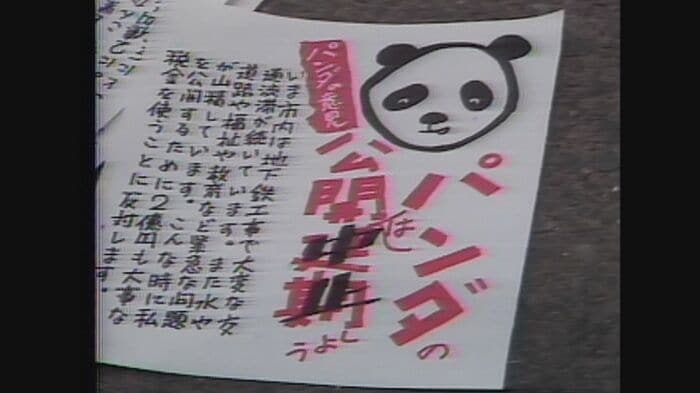 パンダの
公開
しよう
パンダの意見
いま市内は地下鉄工事で大変な交
通渋滞が続いています。また水や
道路や福祉や教育など緊急な問題
が山積しています。こんな時に私
を公開するために2億円も大事な
税金を使うことに反対します。